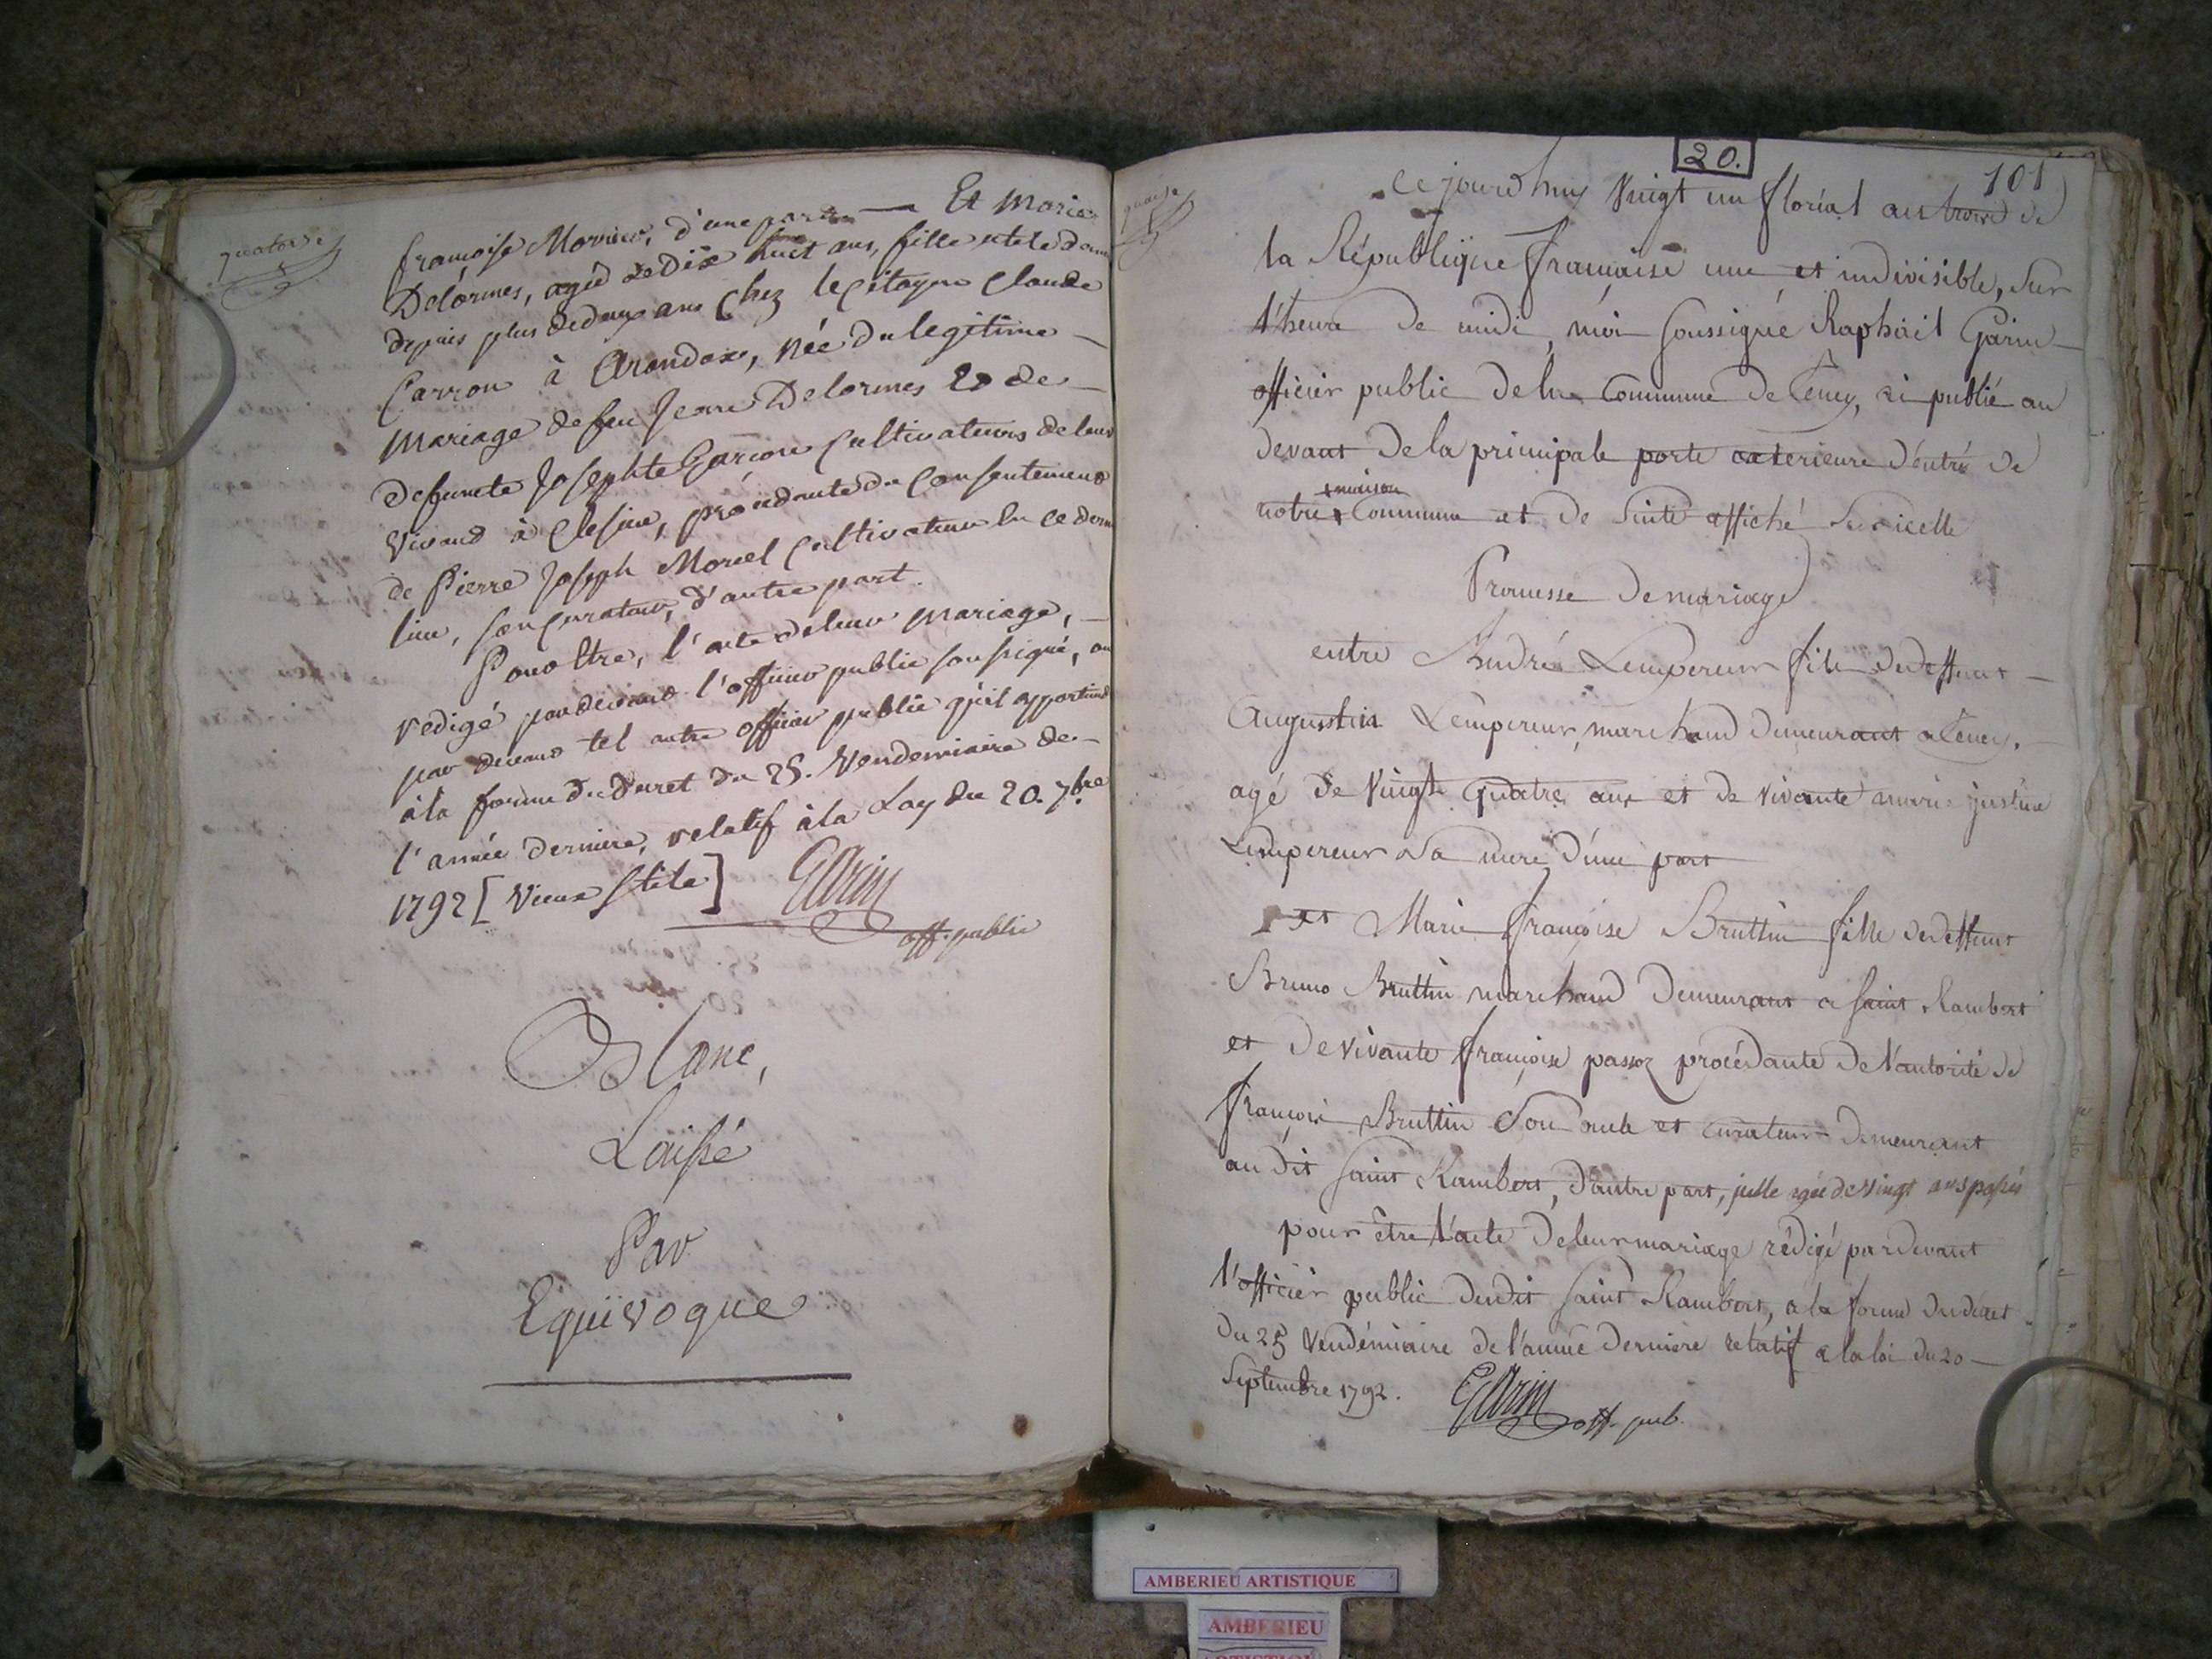 quatorze
francoise Morvieu, d'une part — Et Marie
Delormes, agée de dix huit ans, fille
depuis plus de deux ans chez le citoyen Claude
Carron à Arandax, née du legitime —
mariage de feu Jean Delormes & de —
defuncte Josephte Garcon cultivateurs de leur
vivand à Clesieu, procedante du consentement
de Pierre Joseph Morel cultivateur
lieu, son curateur, d'autre part.
Pour être, l'acte de leur mariage, —
redigé pardevant l'officier public soussigné, ou
par devant tel autre officier public qu'il appartiend
à la forme du decret du 25. Vendemiaire de —
l'année derniere, relatif à la Loy du 20. 7bre
1792 [Vieux stile]
Garin
off. public
Blanc,
Laissé
Par
Equivoque
20.
101
ce jourd'huy Vingt un floréal an trois de
la République française une et indivisible, sur
l'heure de midi, moi soussigné Raphaël Garin —
officier public de la commune de Tency, ai publié au
devant de la principale porte exterieure d'entré de
+ maison
notre + Commune et de suite affiché sur icelle
Promesse de mariage
entre André Lempereur fils de deffunt —
Augustin Lempereur, marchand demeurant a Tency. —
agé de Vingt quatre ans et de vivante marie justine
Lempereur sa mere d'une part
et Marie françoise Bruttin fille de deffunt
Bruno Bruttin marchand demeurant a saint Rambert
et de vivante françoise passoz procédante de l'autorité de
françois Bruttin son oncle et curateur demeurant
au dit saint Rambert, d'autre part, jcelle agée de vingt ans passés
pour être l'acte de leur mariage rédigé pardevant
l'officier public dudit saint Rambert, a la forme du décret
du 25 Vendémiaire de l'année derniere relatif a la loi du 20 —
Septembre 1792.
Garin off. pub.
AMBERIEU ARTISTIQUE
AMBERIEU
ARTISTIQUE